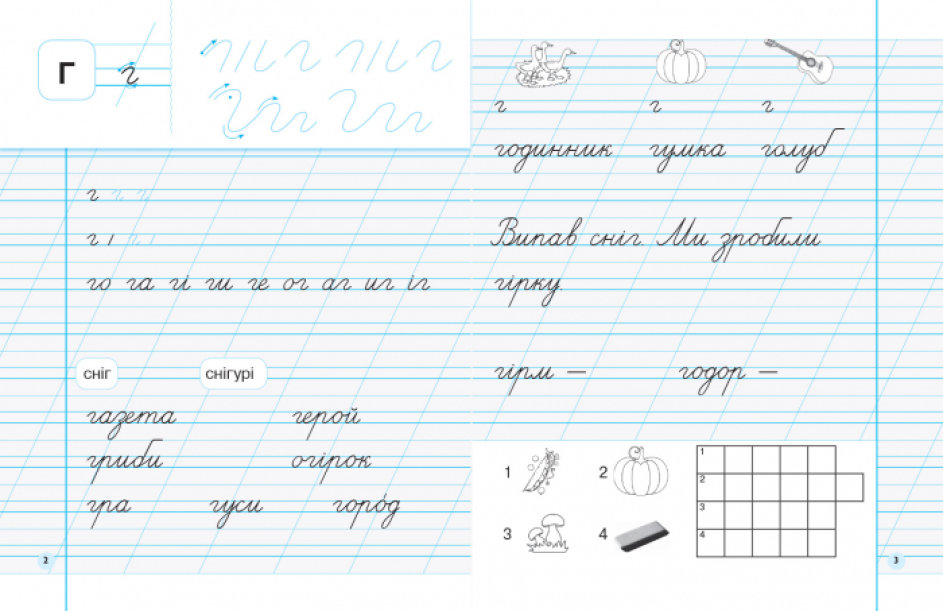 г г
г г г
г і г і
го га гі ги ге ог аг иг іг
сніг снігурі
газета герой
гриби огірок
гра гуси горо́д
2
г г г
годинник гумка голуб
Випав сніг. Ми зробили
гірку.
гірм — годор —
1 2
3 4
1
2
3
4
3